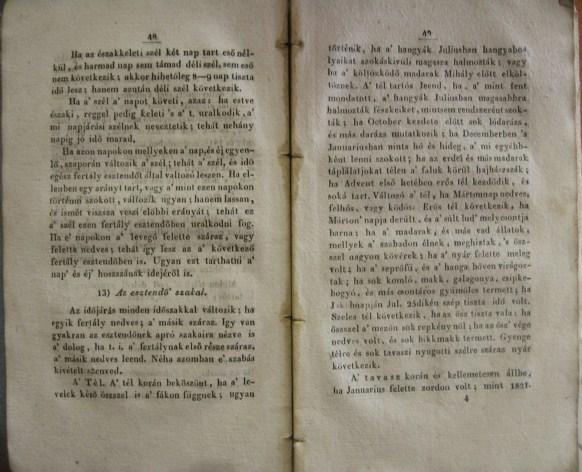 48
Ha az északkeleti szél két nap tart eső nél-
kül, és harmad nap sem támad déli szél, sem eső
nem következik; akkor hihetőleg 8—9 nap tiszta
idő lesz; hanem azután déli szél következik.
Ha a' szél a' napot követi, azaz: ha estve
északi, reggel pedig keleti 's a' t. uralkodik, a'
mi napjárási szélnek neveztetik; tehát néhány
napig jó idő marad.
Ha azon napokon mellyeken a' nap, és éj egyen-
lő, szaporán változik a' szél; tehát a' szél, és idő
egész fertály esztendőt által változó leszen. Ha el-
lenben egy arányt tart, vagy a' mint ezen napokon
történni szokott, változik ugyan; hanem lassan,
és ismét vissza veszi előbbi erányát; tehát ez
a' szél ezen fertály esztendőben uralkodni fog.
Ha e' napokon a' levegő felette száraz, vagy
felette nedves; tehát így lesz az a' következő
fertály esztendőben is. Ugyan ezt tarthatni a'
nap' és éj' hosszának idejéről is.
13) Az esztendő' szakai.
Az időjárás minden időszakkal változik; ha
egyik fertály nedves; a' másik száraz. Igy van
gyakran az esztendőnek apró szakaira nézve is
a' dolog, ha t. i. a' fertálynak első része száraz,
a' másik nedves leend. Néha azomban e' szabás
kivételt szenved.
A' Tél. A' tél korán beköszönt, ha a' le-
velek késő ösziszel is a' fákon függnek; ugyan
49
történik, ha a' hangyák Juliusban hangyabo-
lyaikat szokáskivüli magasra halmozták; vagy
ha a' költözködő madarak Mihály előtt elköl-
töznek. A' tél tartós leend, ha, a' mint fent
mondatott, a' hangyák Juliusban magasabbra
halmozták fészkeiket, mintsem rendszerént szok-
ták; ha October kezdete előtt sok lódarázs,
és más darázs mutatkozik; ha Decemberben 's
Januariusban nints hó és hideg, a' mi egyéb-
ként lenni szokott; ha az erdei és más madarak
táplálatjokat télen a' faluk körül hajhásszák;
ha Advent első hetében erős tél kezdődik, és
soká tart. Változó a' tél, ha Mártonnap nedves,
felhős, vagy ködös: Erős tél következik, ha
Márton' napja derült, és a' sült lud' melycsontja
barna; ha a' madarak, és más vad állatok,
mellyek a' szabadon élnek, meghíztak, 's ösz-
szel nagyon kövérek; ha a' nyár felette meleg
volt; ha a' seprűfű, és a' hanga bőven virágoz-
tak; ha sok komló, makk, galagonya, csipke-
bogyó, és más csontáros gyümölcs termett; ha
Jakabnapján Jul. 25dikén szép tiszta idő volt.
Szeles tél következik, ha az ősz tiszta vala; ha
ősszszel a' mezőn sok repkény nől; ha az ősz' vége
nedves volt, és sok hikkmakk termett. Gyenge
télre és sok tavaszi nyugoti szélre száraz nyár
következik.
A' tavasz korán és kellemetesen állbe,
ha Januarius felette zordon volt; mint 1821.
4